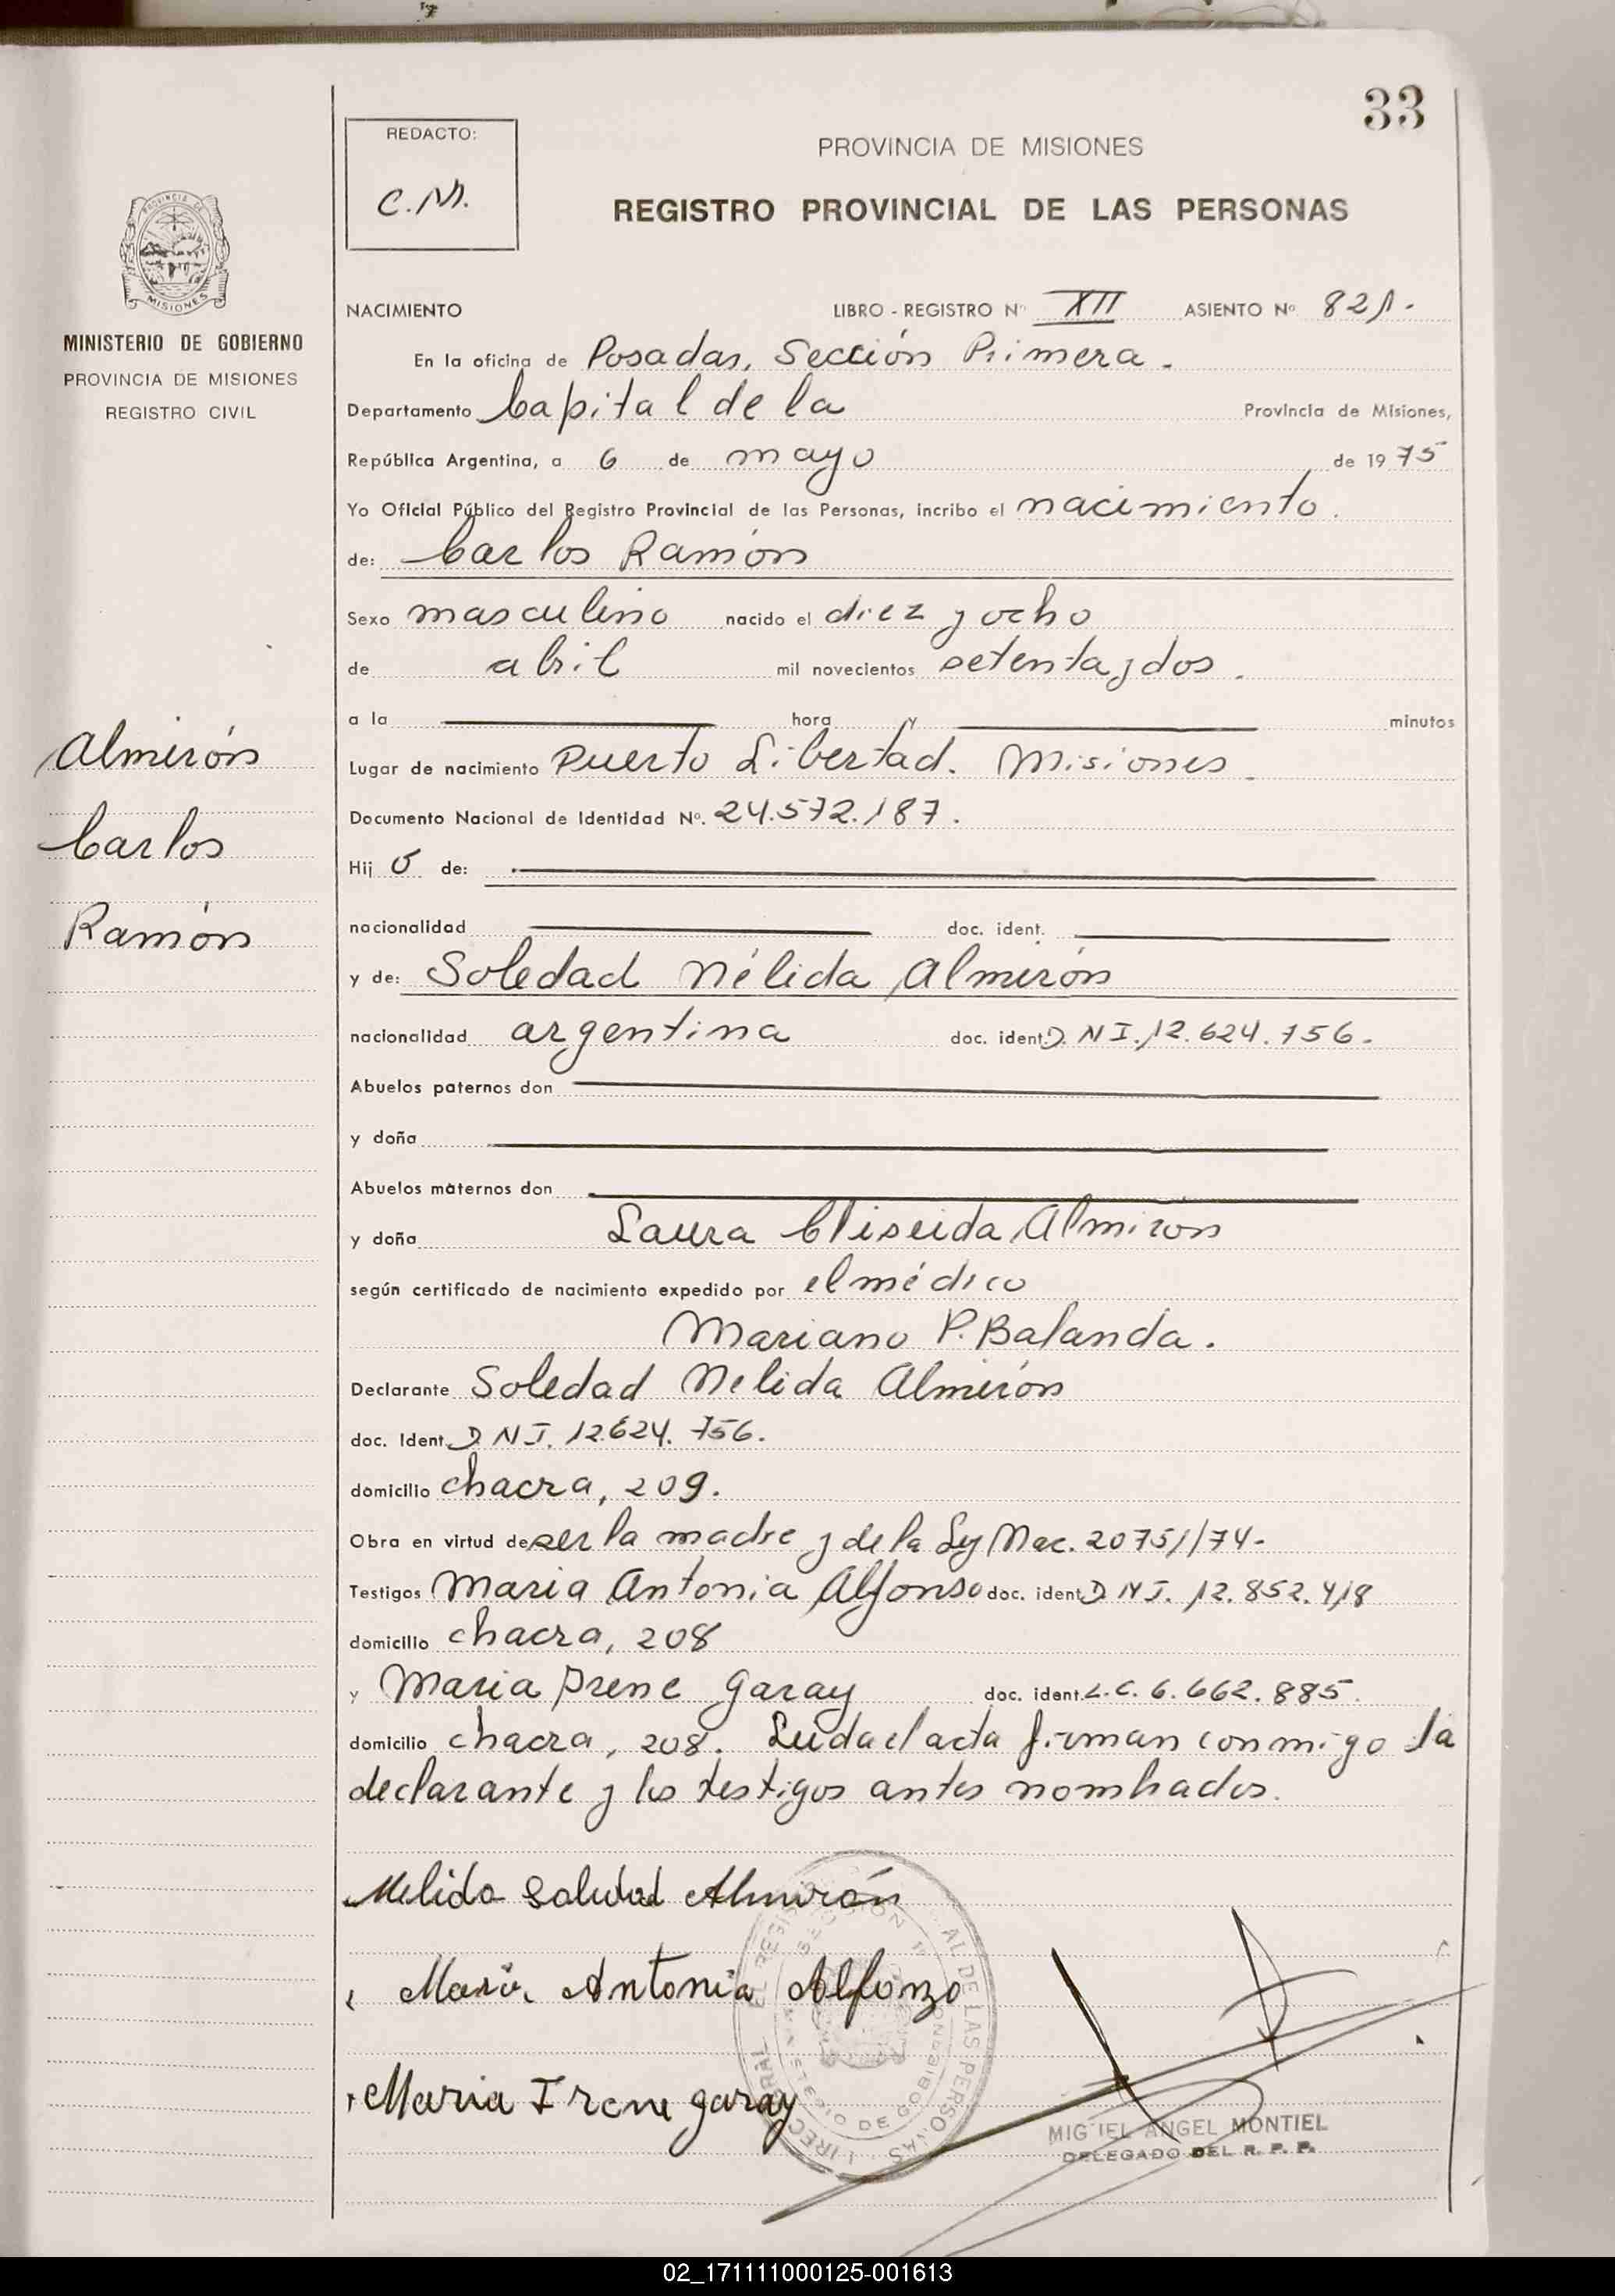 33
REDACTO:
C.M.
PROVINCIA DE MISIONES
REGISTRO PROVINCIAL DE LAS PERSONAS
MISIONES
MINISTERIO DE GOBIERNO
PROVINCIA DE MISIONES
REGISTRO CIVIL
Almirón
Carlos
Ramón
NACIMIENTO LIBRO - REGISTRO Nº XII ASIENTO Nº 821.
En la oficina de Posadas, Sección Primera.
Departamento Capital de la Provincia de Misiones,
República Argentina, a 6 de mayo de 1975
Yo Oficial Público del Registro Provincial de las Personas, incribo el nacimiento.
de: Carlos Ramón
Sexo masculino nacido el diez y ocho
de abril mil novecientos setenta y dos.
a la hora y minutos
Lugar de nacimiento Puerto Libertad. Misiones.
Documento Nacional de Identidad Nº. 24.572.187.
Hij o de:
nacionalidad doc. ident.
y de: Soledad Nélida Almirón
nacionalidad argentina doc. ident. D.N.I. 12.624.756.
Abuelos paternos don
y doña
Abuelos maternos don
y doña Laura Cliseida Almirón
según certificado de nacimiento expedido por el médico
Mariano P. Balanda.
Declarante Soledad Nelida Almirón
doc. Ident. D.N.I. 12.624.756.
domicilio chacra, 209.
Obra en virtud de ser la madre y de la Ley Nac. 20751/74.
Testigos Maria Antonia Alfonso doc. ident. D.N.I. 12.852.418
domicilio chacra, 208
y Maria Irene Garay doc. ident. L.C. 6.662.885.
domicilio chacra, 208. Leida el acta firman conmigo la
declarante y los testigos antes nombrados.
Nelida Soledad Almirón
Maria Antonia Alfonzo
Maria Irene garay
MIGUEL ANGEL MONTIEL
DELEGADO DEL R. P. P.
02_171111000125-001613